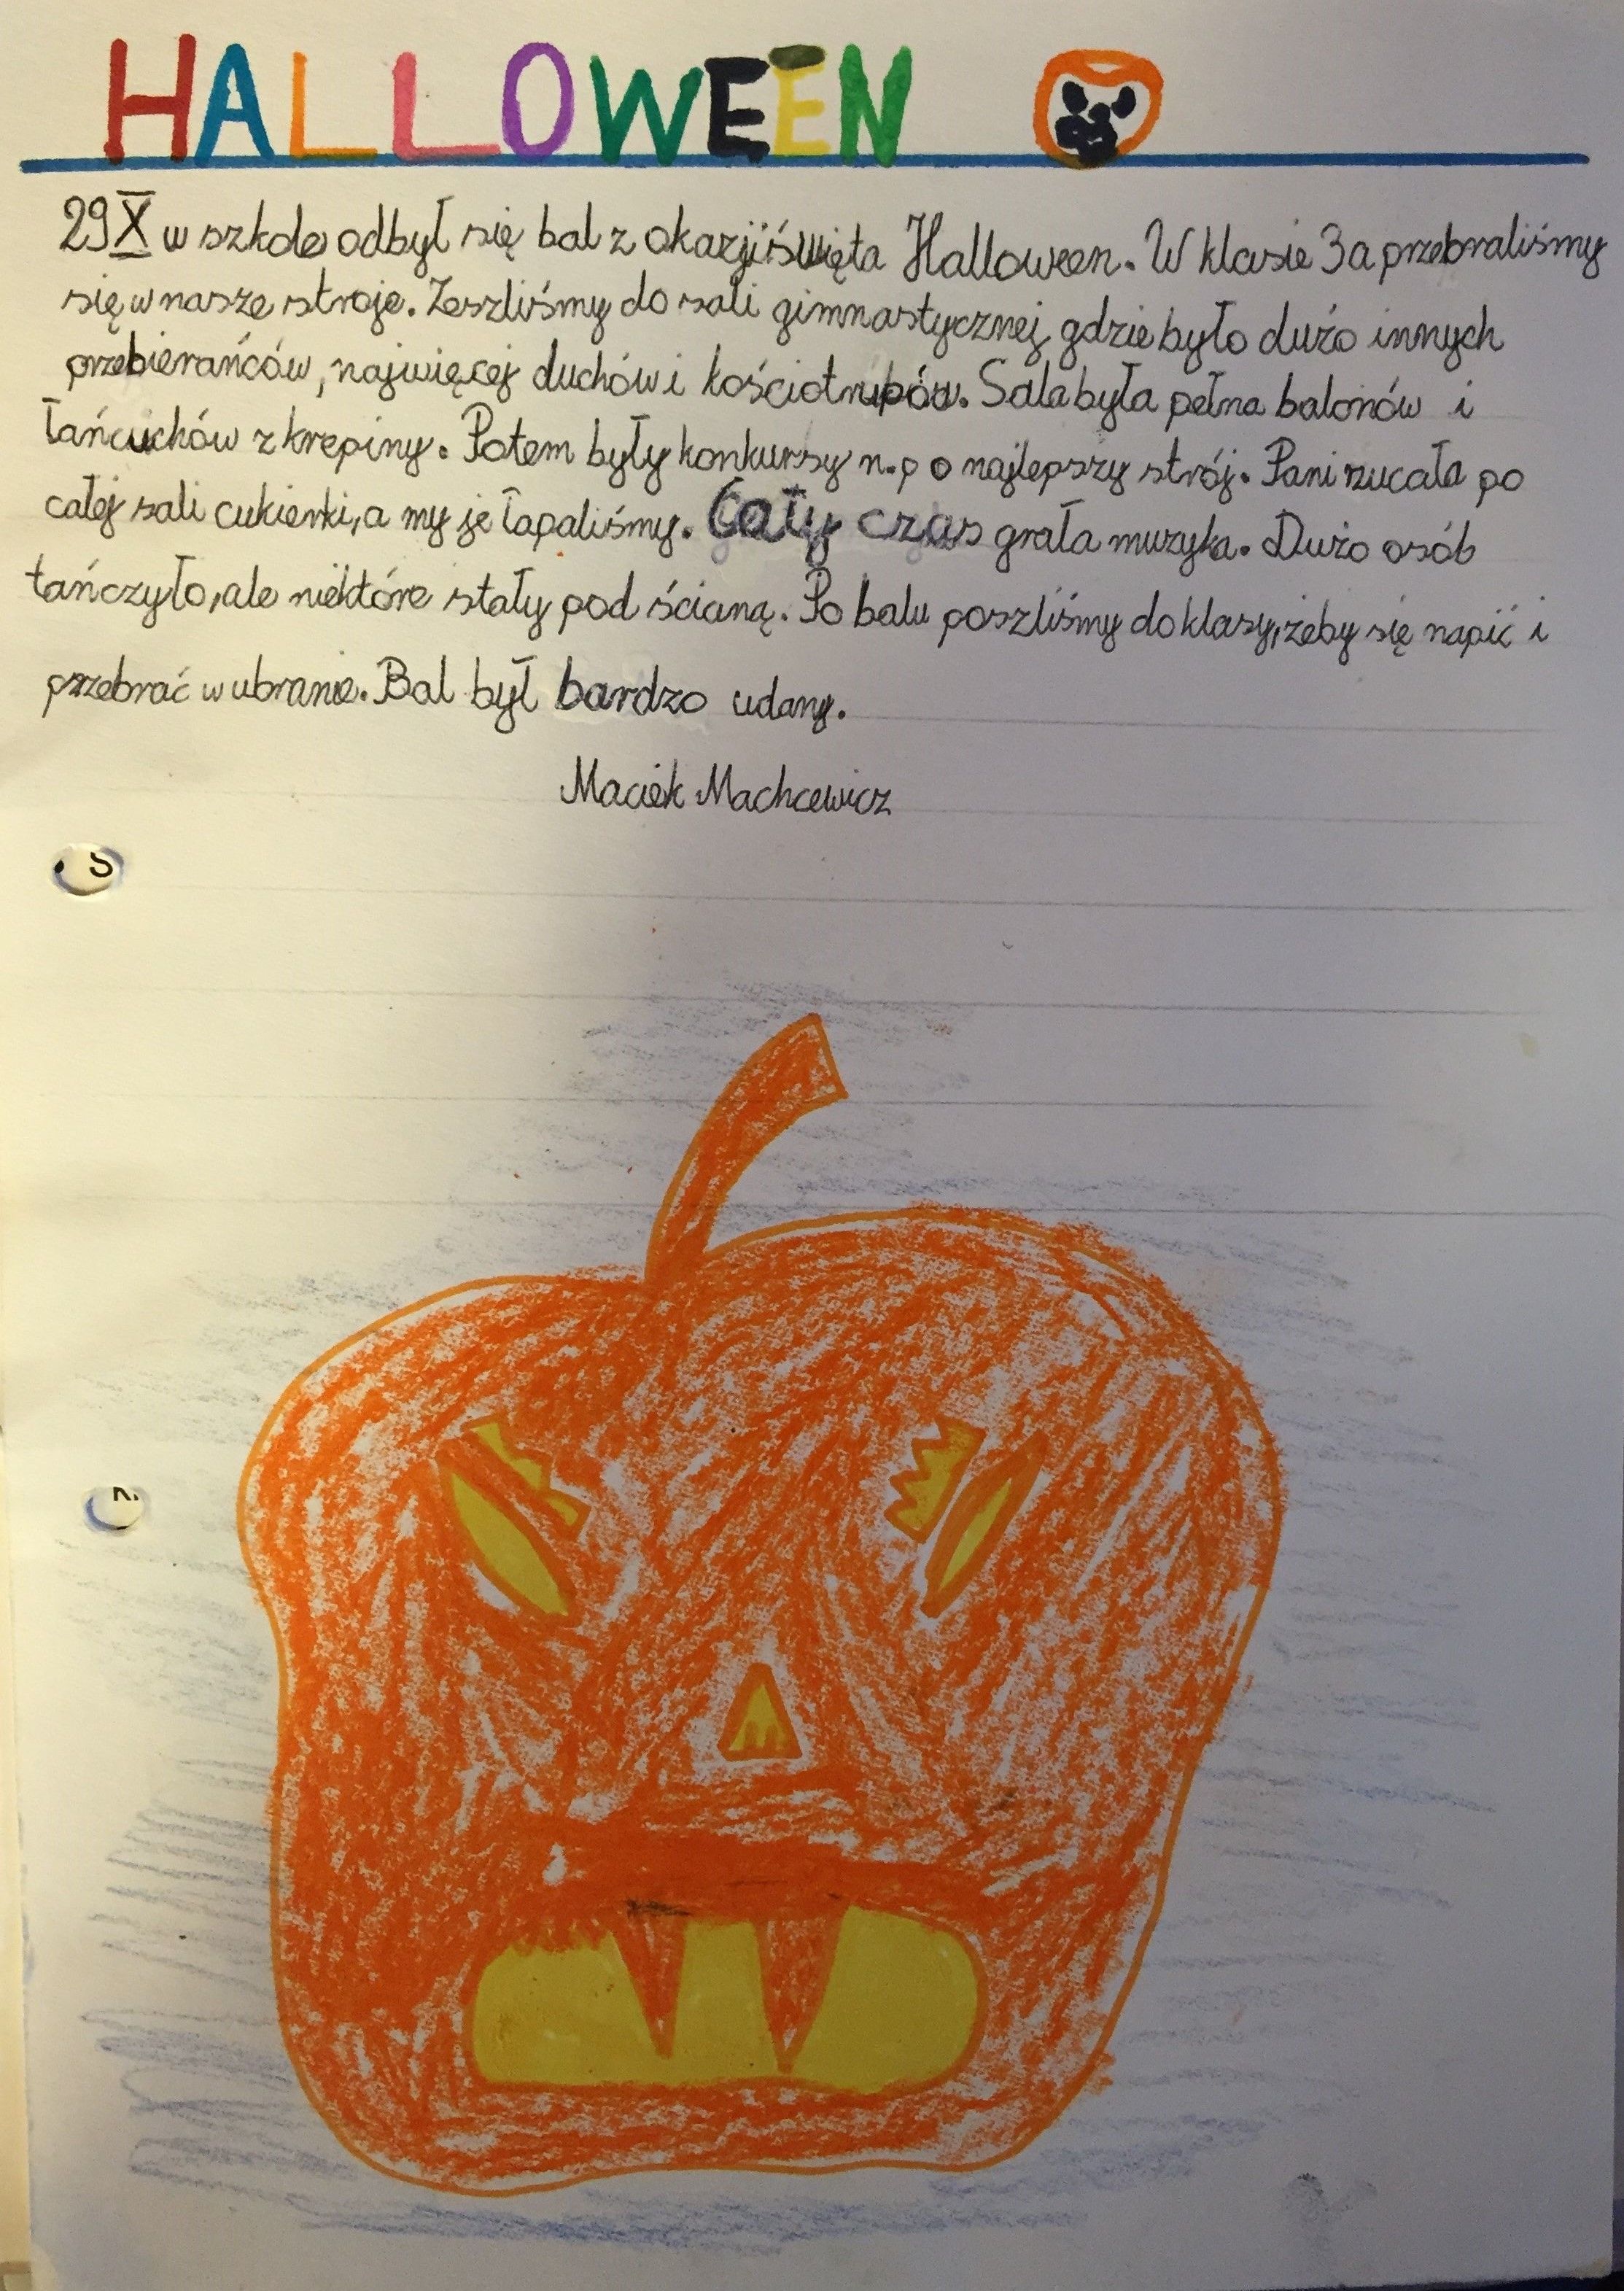 HALLOWEEN
29 X w szkole odbył się bal z okazji święta Halloween. W klasie 3a przebraliśmy
się w nasze stroje. Zeszliśmy do sali gimnastycznej, gdzie było dużo innych
przebierańców, najwięcej duchów i kościotrupów. Sala była pełna balonów i
łańcuchów z krepiny. Potem były konkursy n.p o najlepszy strój. Pani rzucała po
całej sali cukierki, a my je łapaliśmy. Cały czas grała muzyka. Dużo osób
tańczyło, ale niektóre stały pod ścianą. Po balu poszliśmy do klasy, żeby się napić i
przebrać w ubranie. Bal był bardzo udany.
Maciek Machcewicz